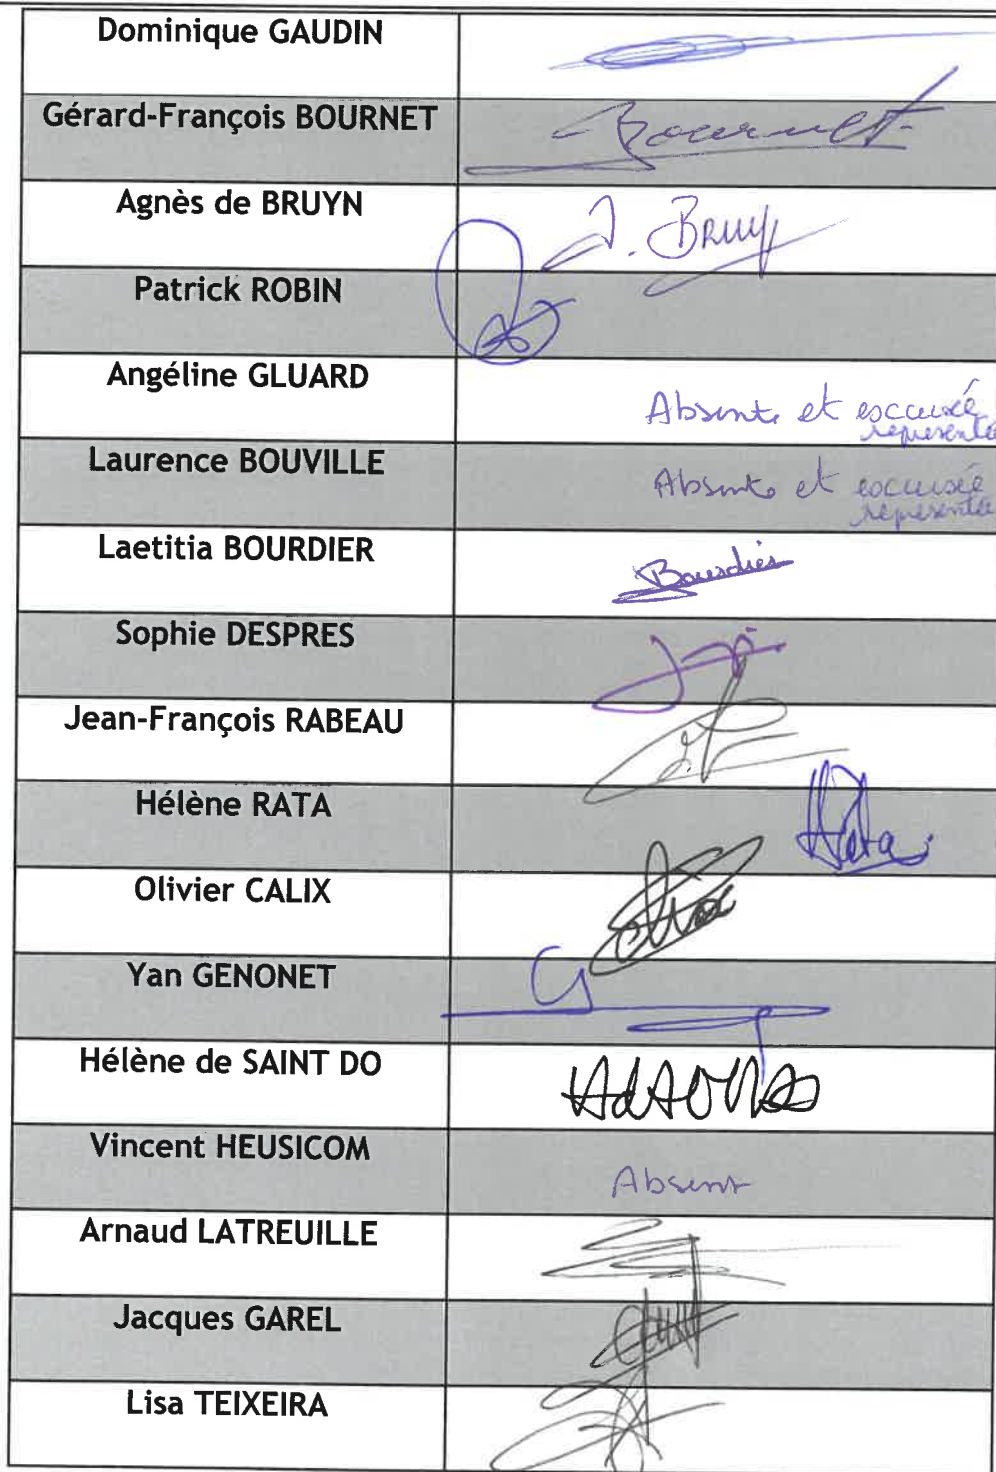 Dominique GAUDIN
Gérard-François BOURNET
Bournet
Agnès de BRUYN
Patrick ROBIN
Angéline GLUARD
Absente et excusée
représentée
Laurence BOUVILLE
Absente et excusée
représentée
Laetitia BOURDIER
Bourdier
Sophie DESPRES
Jean-François RABEAU
Hélène RATA
Rata
Olivier CALIX
Yan GENONET
Hélène de SAINT DO
Vincent HEUSICOM
Absent
Arnaud LATREUILLE
Jacques GAREL
Lisa TEIXEIRA